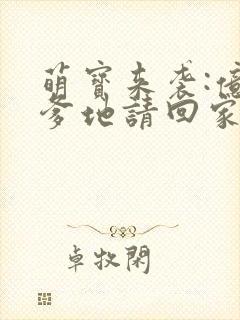 萌寶來袭:億
爹地請回家
卓牧閑